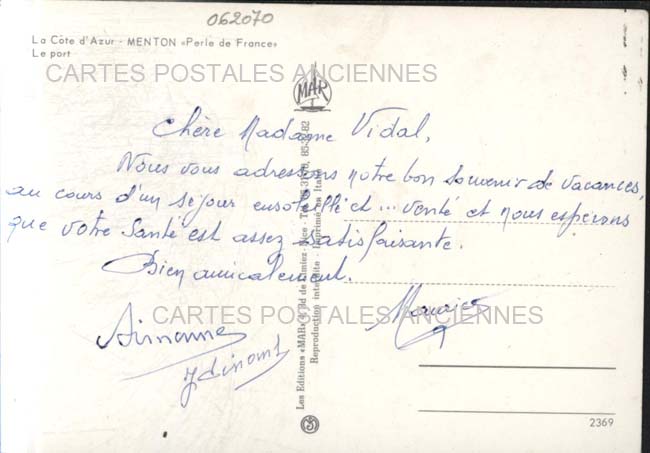 062070
La Côte d'Azur - MENTON «Perle de France»
Le port
CARTES POSTALES ANCIENNES
MAR
Chère Madame Vidal,
Nous vous adressons notre bon souvenir de vacances,
au cours d'un séjour ensoleillé et... venté et nous espérons
que votre santé est assez satisfaisante.
Bien amicalement.
Maurice
CARTES POSTALES ANCIENNES
Les Editions «MAR»
Reproduction interdite - Imprimé en Italie
2369